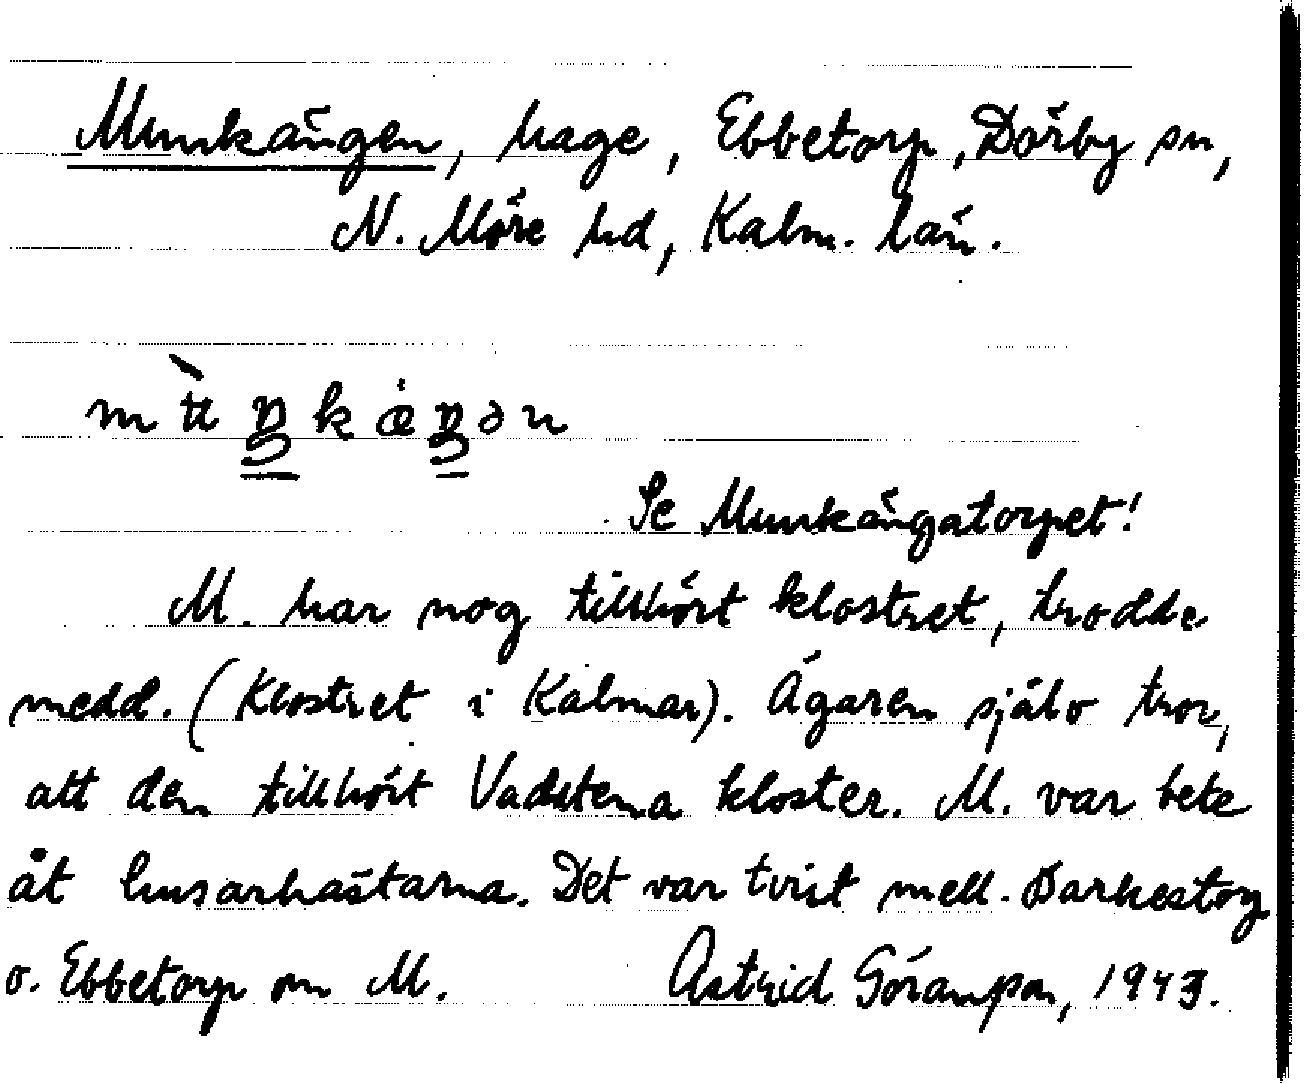 Munkängen, hage, Ebbetorp, Dörby sn,
N. Möre hd, Kalm. län.
Se Munkängatorpet!
M. har nog tillhört klostret, trodde
medd. (Klostret i Kalmar). Ägaren själv tror,
att den tillhört Vadstena kloster. M. var bete
åt husarhästarna. Det var tvist mell. Barkestorp
o. Ebbetorp om M. Astrid Göransson, 1943.